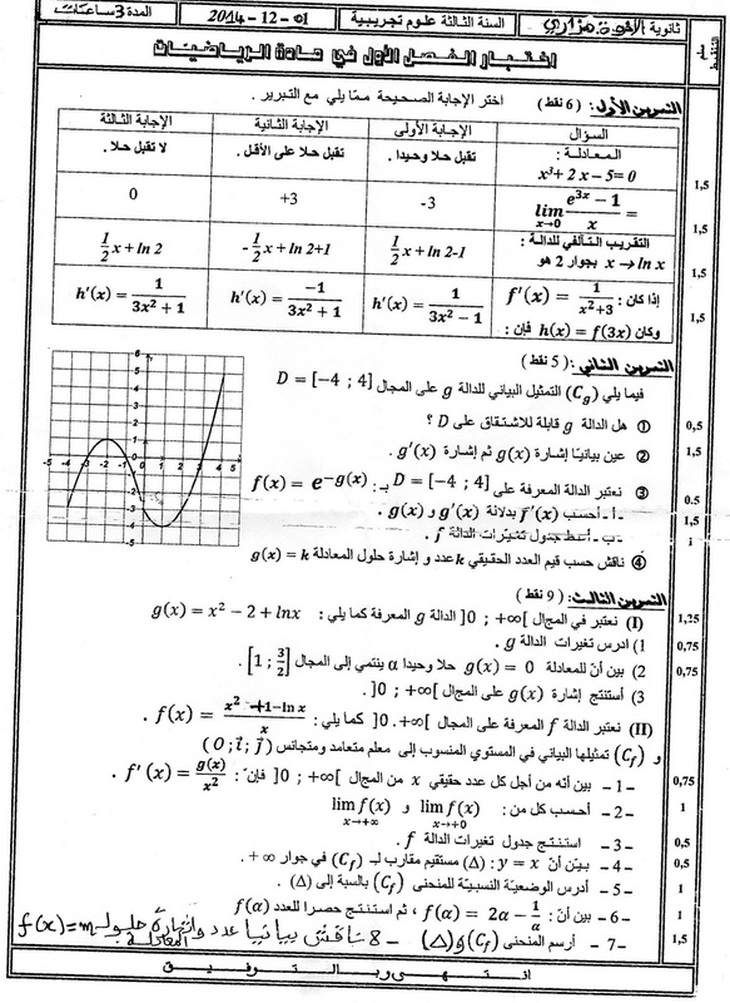 ثانوية الإخوة هزازي السنة الثالثة علوم تجريبية 01 - 12 - 2014 المدة 3 ساعات
اختبار الفصل الأول في مادة الرياضيات
سلم التنقيط
التمرين الأول: (6 نقط) اختر الإجابة الصحيحة ممّا يلي مع التبرير .
السؤال الإجابة الأولى الإجابة الثانية الإجابة الثالثة
المعادلة : x³+ 2 x – 5= 0 تقبل حلا وحيدا . تقبل حلا على الأقل . لا تقبل حلا . 1,5
lim x→0 (e^{3x} − 1)/x = -3 +3 0 1,5
التقريب التآلفي للدالة : x → ln x بجوار 2 هو 1/2 x + ln 2-1 -1/2 x + ln 2+1 1/2 x + ln 2 1,5
إذا كان : f'(x) = 1/(x²+3) وكان h(x) = f(3x) فإن : h'(x) = 1/(3x² − 1) h'(x) = −1/(3x² + 1) h'(x) = 1/(3x² + 1) 1,5
التمرين الثاني : (5 نقط)
فيما يلي (C_g) التمثيل البياني للدالة g على المجال D = [−4 ; 4]
① هل الدالة g قابلة للاشتقاق على D ؟ 0,5
② عين بيانيا إشارة g(x) ثم إشارة g'(x) . 1,5
③ نعتبر الدالة المعرفة على D = [−4 ; 4] بـ : f(x) = e^{−g(x)}
- أ - أحسب f'(x) بدلالة g'(x) و g(x) . 0.5
- ب - أعط جدول تغيّرات الدالة f . 1,5
④ ناقش حسب قيم العدد الحقيقي k عدد و إشارة حلول المعادلة g(x) = k 1
6 5 4 3 2 1 0 -1 -2 -3 -4 -5
-5 -4 -3 -2 -1 0 1 2 3 4 5
التمرين الثالث : (9 نقط)
(I) نعتبر في المجال ]0 ; +∞[ الدالة g المعرفة كما يلي : g(x) = x² − 2 + lnx
1) ادرس تغيرات الدالة g . 1,25
2) بين أنّ للمعادلة g(x) = 0 حلا وحيدا α ينتمي إلى المجال [1 ; 3/2] . 0,75
3) أستنتج إشارة g(x) على المجال ]0 ; +∞[ . 0,75
(II) نعتبر الدالة f المعرفة على المجال ]0 . +∞[ كما يلي : f(x) = (x² +1−ln x)/x .
و (C_f) تمثيلها البياني في المستوي المنسوب إلى معلم متعامد ومتجانس (O ; i ; j)
- 1 - بين أنه من أجل كل عدد حقيقي x من المجال ]0 ; +∞[ فإنّ : f'(x) = g(x)/x² . 0,75
- 2 - أحسب كل من : lim f(x) x→+0 و lim f(x) x→+∞ 1
- 3 - استنتج جدول تغيرات الدالة f . 0,5
- 4 - بيّن أنّ y = x : (Δ) مستقيم مقارب لـ (C_f) في جوار ∞ + . 0,5
- 5 - أدرس الوضعيّة النسبيّة للمنحنى (C_f) بالسبة إلى (Δ) . 1
- 6 - بين أنّ : f(α) = 2α − 1/α ، ثم استنتج حصرا للعدد f(α) 1
- 7 - أرسم المنحنى (C_f) و (Δ) - 8 ناقش بيانيا عدد وإشارة حلول المعادلة f(x)=m 1,5
انتهى وبالتوفيق